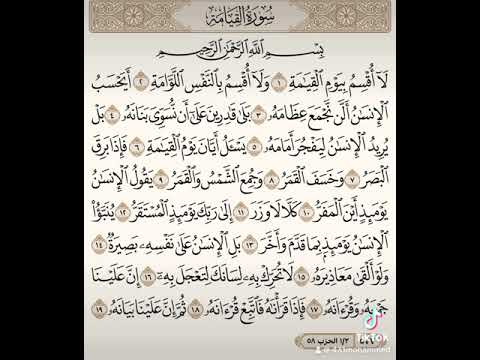 سُورَةُ القِيَامَةِ
بِسْمِ اللَّهِ الرَّحْمَٰنِ الرَّحِيمِ
لَآ أُقْسِمُ بِيَوْمِ ٱلْقِيَٰمَةِ ١ وَلَآ أُقْسِمُ بِٱلنَّفْسِ ٱللَّوَّامَةِ ٢ أَيَحْسَبُ
ٱلْإِنسَٰنُ أَلَّن نَّجْمَعَ عِظَامَهُۥ ٣ بَلَىٰ قَٰدِرِينَ عَلَىٰٓ أَن نُّسَوِّىَ بَنَانَهُۥ ٤ بَلْ
يُرِيدُ ٱلْإِنسَٰنُ لِيَفْجُرَ أَمَامَهُۥ ٥ يَسْـَٔلُ أَيَّانَ يَوْمُ ٱلْقِيَٰمَةِ ٦ فَإِذَا بَرِقَ
ٱلْبَصَرُ ٧ وَخَسَفَ ٱلْقَمَرُ ٨ وَجُمِعَ ٱلشَّمْسُ وَٱلْقَمَرُ ٩ يَقُولُ ٱلْإِنسَٰنُ
يَوْمَئِذٍ أَيْنَ ٱلْمَفَرُّ ١٠ كَلَّا لَا وَزَرَ ١١ إِلَىٰ رَبِّكَ يَوْمَئِذٍ ٱلْمُسْتَقَرُّ ١٢ يُنَبَّؤُا۟
ٱلْإِنسَٰنُ يَوْمَئِذٍۭ بِمَا قَدَّمَ وَأَخَّرَ ١٣ بَلِ ٱلْإِنسَٰنُ عَلَىٰ نَفْسِهِۦ بَصِيرَةٌ ١٤
وَلَوْ أَلْقَىٰ مَعَاذِيرَهُۥ ١٥ لَا تُحَرِّكْ بِهِۦ لِسَانَكَ لِتَعْجَلَ بِهِۦٓ ١٦ إِنَّ عَلَيْنَا
جَمْعَهُۥ وَقُرْءَانَهُۥ ١٧ فَإِذَا قَرَأْنَٰهُ فَٱتَّبِعْ قُرْءَانَهُۥ ١٨ ثُمَّ إِنَّ عَلَيْنَا بَيَانَهُۥ ١٩
١/٢ الحزب ٥٨
TikTok